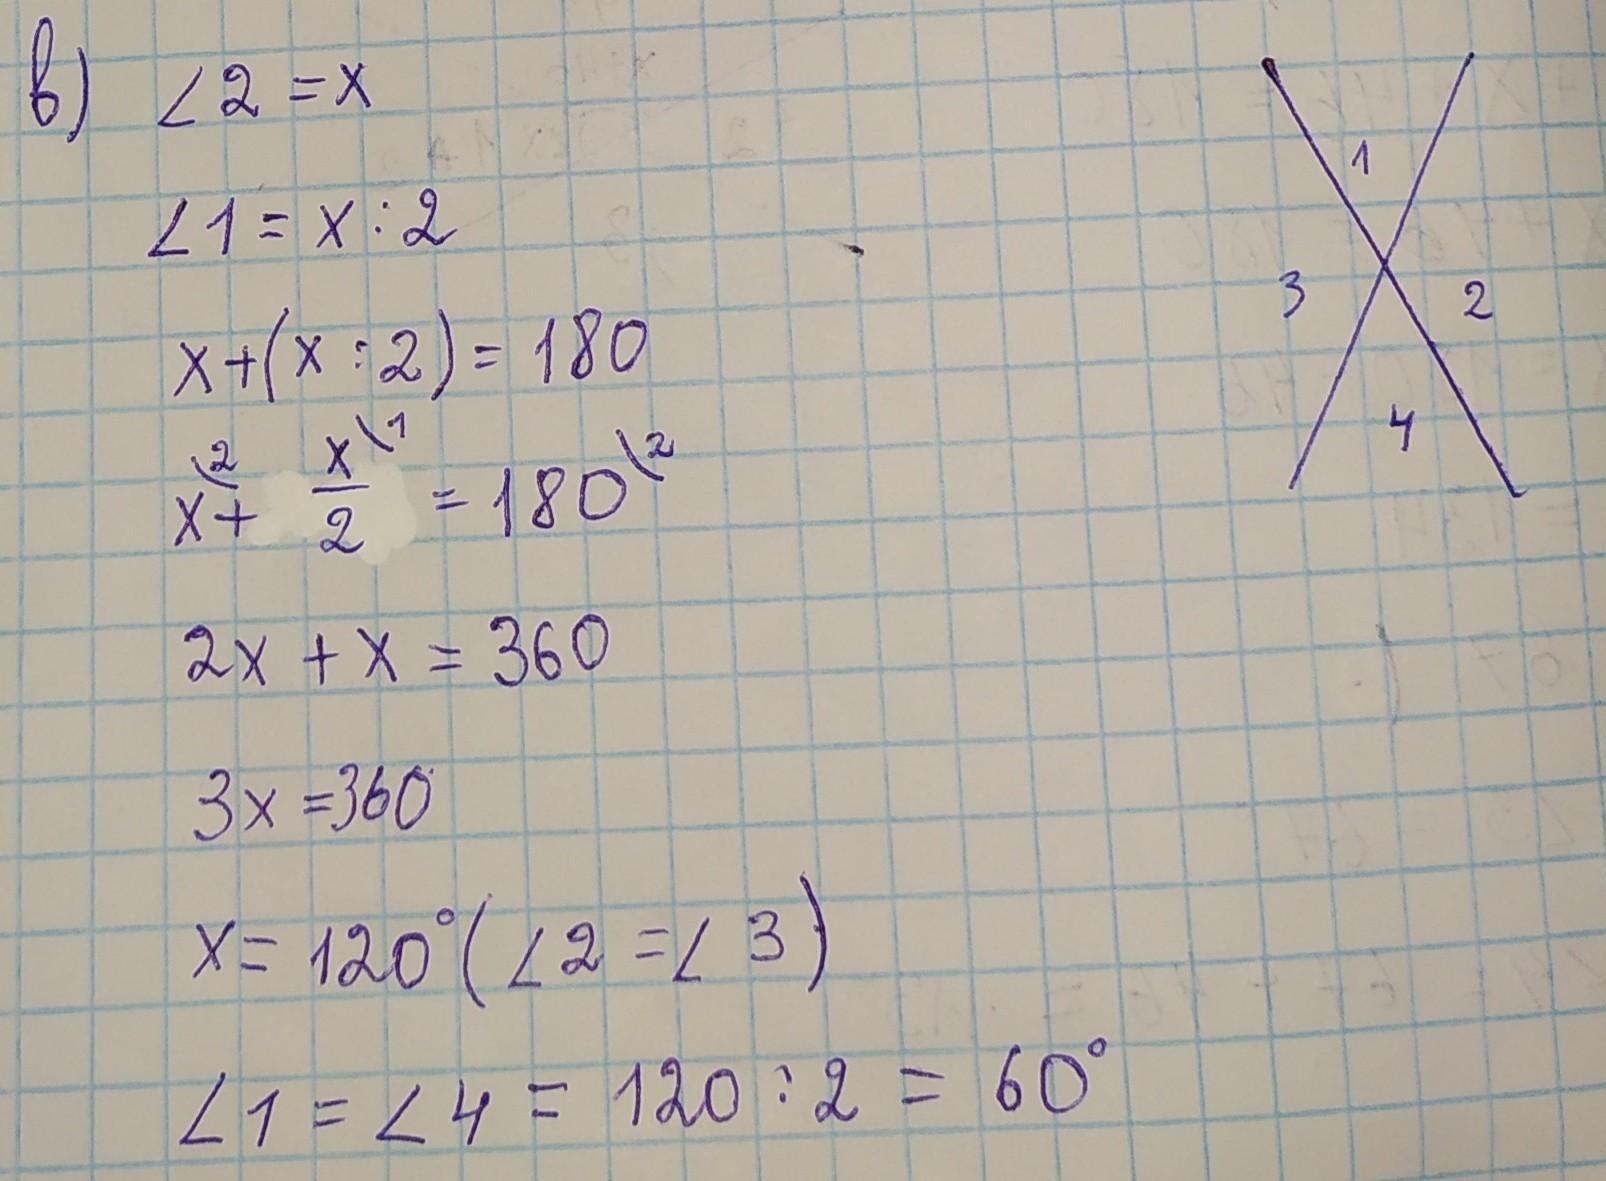 в) ∠2 = x
∠1 = x : 2
x + (x : 2) = 180
x\2 + x\1/2 = 180\2
2x + x = 360
3x = 360
x = 120° (∠2 = ∠3)
∠1 = ∠4 = 120 : 2 = 60°
1
3 2
4